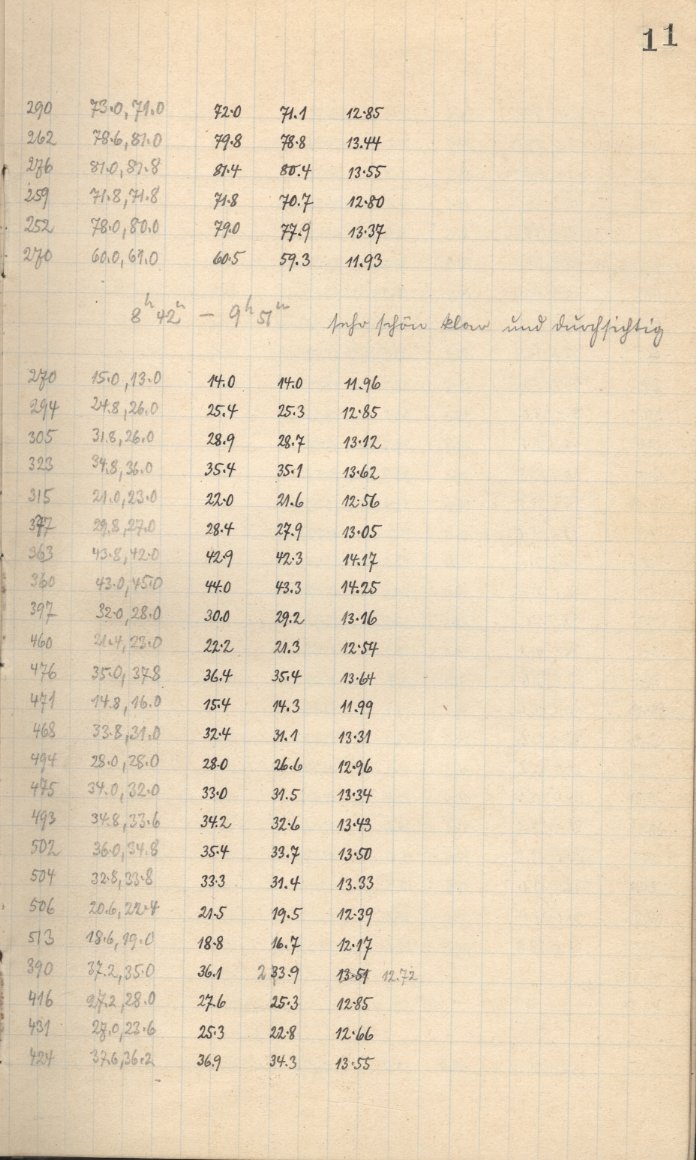 11
290 73.0, 71.0 72.0 71.1 12.85
262 78.6, 81.0 79.8 78.8 13.44
276 81.0, 81.8 81.4 80.4 13.55
259 71.8, 71.8 71.8 70.7 12.80
252 78.0, 80.0 79.0 77.9 13.37
270 60.0, 61.0 60.5 59.3 11.93
8h 42m — 9h 51m sehr schön klar und durchsichtig
270 15.0, 13.0 14.0 14.0 11.96
294 24.8, 26.0 25.4 25.3 12.85
305 31.8, 26.0 28.9 28.7 13.12
323 34.8, 36.0 35.4 35.1 13.62
315 21.0, 23.0 22.0 21.6 12.56
29.8, 27.0 28.4 27.9 13.05
363 43.8, 42.0 42.9 42.3 14.17
360 43.0, 45.0 44.0 43.3 14.25
397 32.0, 28.0 30.0 29.2 13.16
460 21.4, 23.0 22.2 21.3 12.54
476 35.0, 37.8 36.4 35.4 13.64
471 14.8, 16.0 15.4 14.3 11.99
468 33.8, 31.0 32.4 31.1 13.31
494 28.0, 28.0 28.0 26.6 12.96
475 34.0, 32.0 33.0 31.5 13.34
493 34.8, 33.6 34.2 32.6 13.43
502 36.0, 34.8 35.4 33.7 13.50
504 32.8, 33.8 33.3 31.4 13.33
506 20.6, 22.4 21.5 19.5 12.39
513 18.6, 19.0 18.8 16.7 12.17
390 37.2, 35.0 36.1 33.9 13.51 12.72
416 27.2, 28.0 27.6 25.3 12.85
431 27.0, 23.6 25.3 22.8 12.66
424 37.6, 36.2 36.9 34.3 13.55